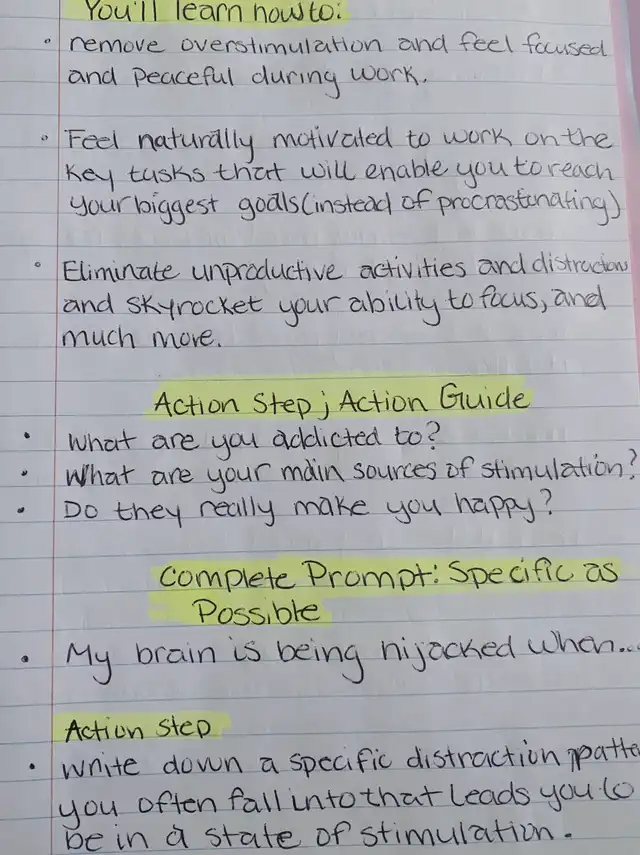 You'll learn how to:
• remove overstimulation and feel focused
and peaceful during work.
• Feel naturally motivated to work on the
key tasks that will enable you to reach
your biggest goals (instead of procrastinating)
• Eliminate unproductive activities and distractions
and skyrocket your ability to focus, and
much more.
Action Step; Action Guide
• What are you addicted to?
• What are your main sources of stimulation?
• Do they really make you happy?
Complete Prompt: Specific as
Possible
• My brain is being hijacked when...
Action Step
• Write down a specific distraction patte
you often fall into that leads you to
be in a state of stimulation.